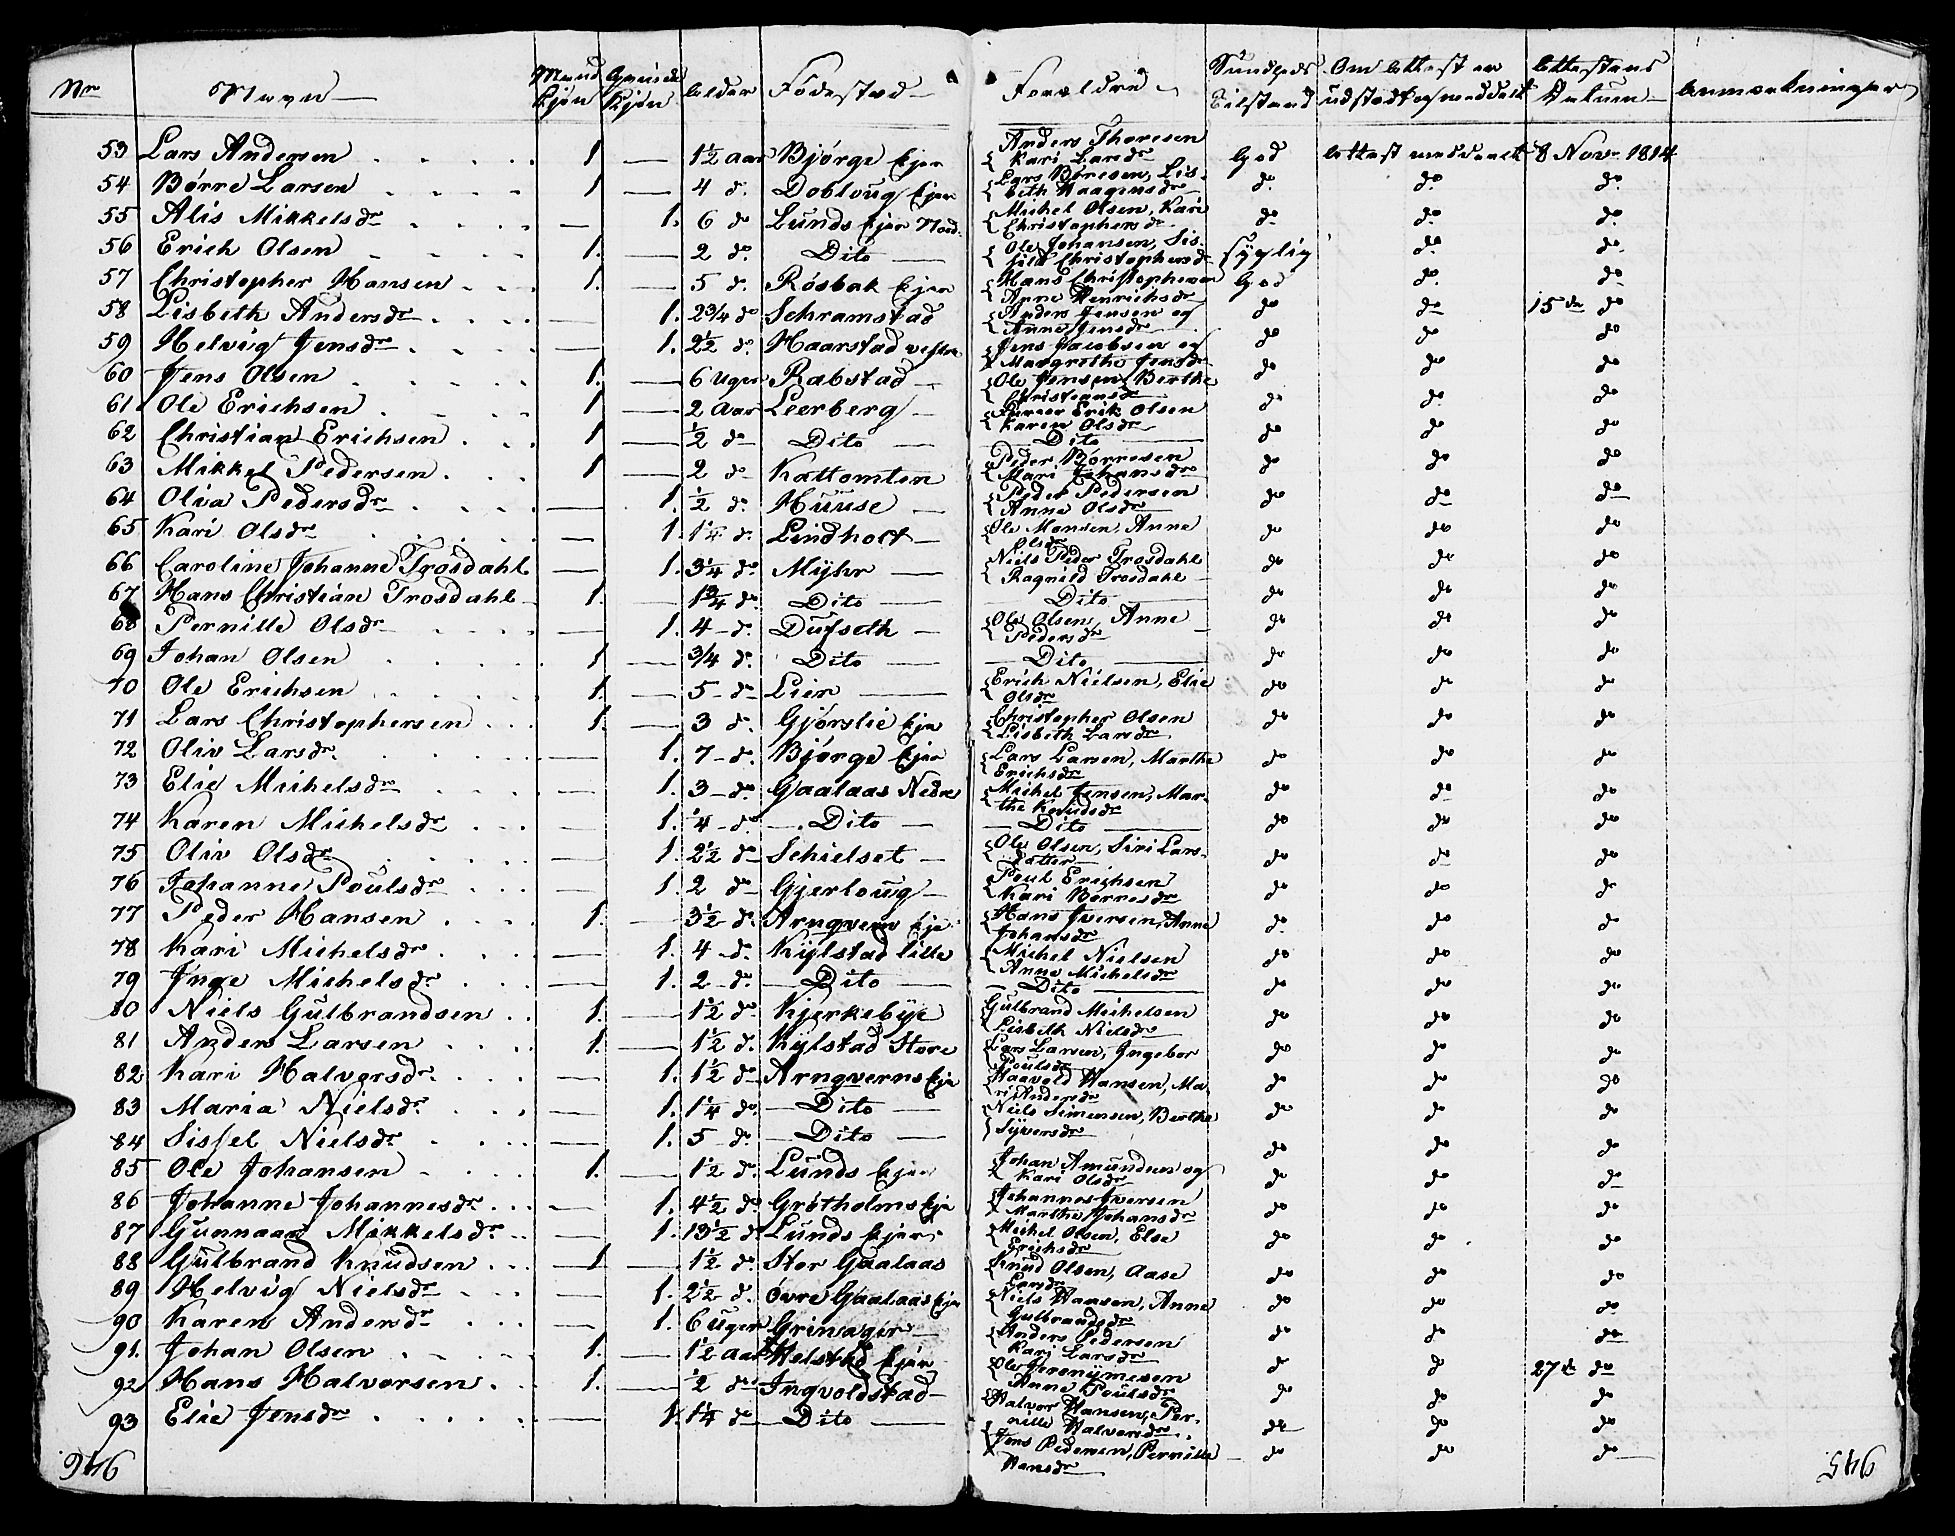 Nr Navn Mand Kjøn Qvinde Kjøn Alder Fødested Forældre Sundheds Tilstand Om Attest er udstedt og meddeelt Attestens Datum Anmærkninger
53 Lars Andersen 1 — 1½ Aar Bjørge Ejer Anders Thoresen Kari Larsdr God Attest meddeelt 8 Nov. 1814
54 Børre Larsen 1 — 4 do Dobloug Ejer Lars Børresen, Lisbeth Haagensdr do do do
55 Alis Mikkelsdr — 1. 6 do Lunds Ejer Nord. Michel Olsen, Kari Christophersdr do do do
56 Erich Olsen 1. — 2 do Dito Ole Johansen, Christophersdr syglig do do
57 Christopher Hansen 1. — 5 do Rósbak Ejer Hans Christophersen Anne Henrichsdr God do do
58 Lisbeth Andersdr — 1. 2¾ do Schramstad Anders Jensen og Anne Jensdr do do 15de do
59 Helvig Jensdr — 1. 2½ do Haarstad vestre Jens Jacobsen og Margrethe Jensdr do do do
60 Jens Olsen 1. — 6 Uger Rabstad Ole Jensen, Berthe Christiansdr do do do
61 Ole Erichsen 1 — 2 Aar Leerberg Erik Olsen Karen Olsdr do do do
62 Christian Erichsen 1 — ½ do Dito — Dito — do do do
63 Mikkel Pedersen 1 — 2 do Kattomten Peder Børresen Mari Johansdr do do do
64 Olia Pedersdr — 1. ½ do Huuse Peder Pedersen Anne Olsdr do do do
65 Kari Olsdr — 1. 1¼ do Lindholt Ole Monsen, Anne Olsdr do do do
66 Caroline Johanne Trosdahl — 1. 3¼ do Myhr Niels Peder Trosdahl Ragnild Trosdahl do do do
67 Hans Christian Trosdahl 1. — 1¾ do Dito — Dito — do do do
68 Pernille Olsdr 1. 4 do Dufseth Ole Olsen, Anne Pedersdr do do do
69 Johan Olsen 1 — ¾ do Dito — Dito — do do do
70 Ole Erichsen 1. — 5 do Lier Erich Nielsen, Elie Olsdr do do do
71 Lars Christophersen 1. — 3 do Gjørslie Ejer Christopher Olsen Lisbeth Larsdr do do do
72 Oliv Larsdr — 1. 7 do Bjørge Ejer Lars Larsen, Marthe Erichsdr do do do
73 Elie Michelsdr — 1. 3 do Gaalaas Nedre Michel Jensen, Marthe Knudsdr do do do
74 Karen Michelsdr — 1. ¼ do Dito — Dito — do do do
75 Oliv Olsdr — 1. 2½ do Schielset Ole Olsen, Siri Larsdatter do do do
76 Johanne Poulsdr — 1. 2 do Gjerloug Poul Erichsen Kari Børresdr do do do
77 Peder Hansen 1. — 3½ do Arnqvern Eje Hans Iversen, Anne Johansdr do do do
78 Kari Michelsdr — 1. 4 do Kylstad lille Michel Nielsen Anne Michelsdr do do do
79 Inge Michelsdr — 1. 2 do Dito — Dito — do do do
80 Niels Gulbrandsen 1. — 1½ do Kjerkebye Gulbrand Michelsen Lisbeth Nielsdr do do do
81 Anders Larsen 1. — 1½ do Kylstad Store Lars Larsen, Ingebor Poulsdr do do do
82 Kari Halvorsdr — 1. 1½ do Arnqverns Eje Haavold Hansen, Mari Andersdr do do do
83 Maria Nielsdr — 1. 1¼ do Dito Niels Simensen, Berthe Syversdr do do do
84 Sissel Nielsdr — 1. 5 do Dito do do do
85 Ole Johansen 1. — 1½ do Lunds Ejer Johan Amundsen og Kari Olsdr do do do
86 Johanne Johannesdr — 1. 4½ do Grøtholms Eje Johannes Iversen Marthe Johansdr do do do
87 Gunnaar Mikkelsdr — 1. 13½ do Lunds Ejer Michel Olsen, Else Erichsdr do do do
88 Gulbrand Knudsen 1 — 1½ do Stor Gaalaas Knud Olsen, Aase Larsdr do do do
89 Helvig Nielsdr — 1. 2½ do Øvre Gaalaas Eje Niels Hansen, Anne Gulbrandsdr do do do
90 Karen Andersdr — 1. 6 Uger Grinager Anders Pedersen Kari Larsdr do do do
91. Johan Olsen 1. — 1½ Aar Helstad Ejer Ole Jeronymesen Anne Poulsdr do do 27de do
92 Hans Halvorsen 1. — ½ do Ingvoldstad Halvor Hansen, Pernille Halvorsdr do do do
93 Elie Jensdr — 1. 1¼ do Dito Jens Pedersen, Pernille Hansdr do do do
946
945